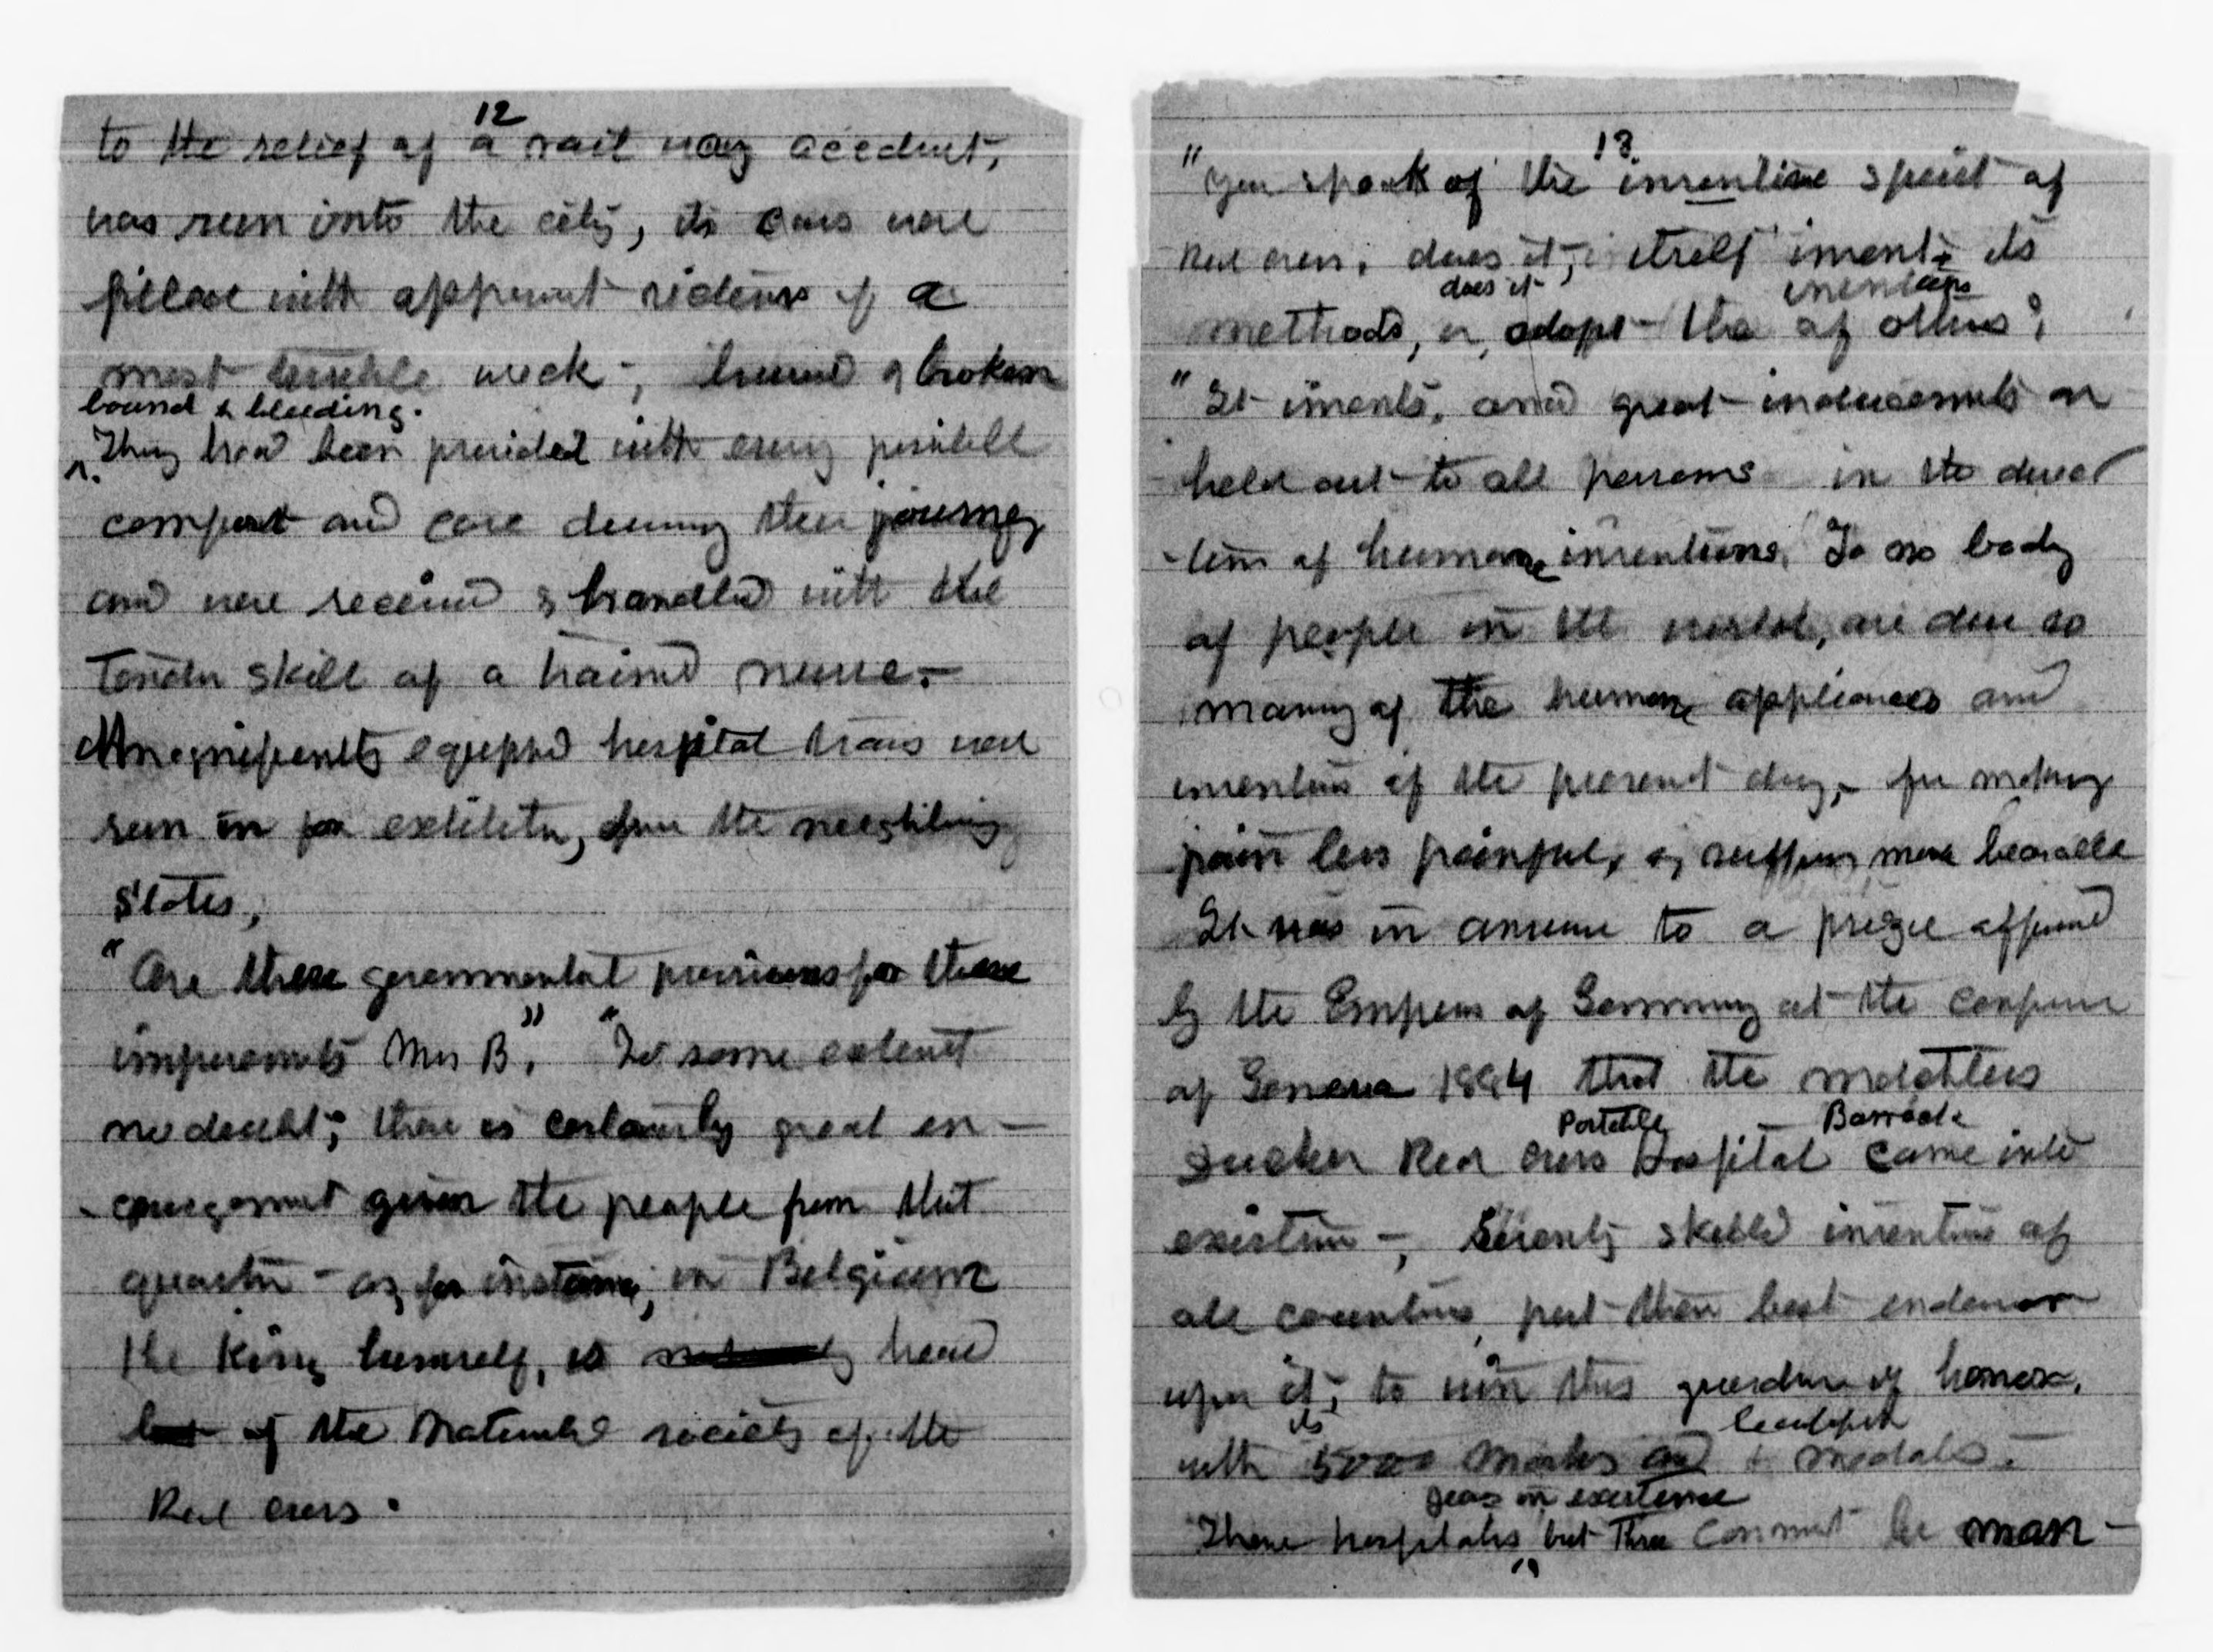 12
to the relief of a rail way accident,
was run into the city, its cars were
filled with apparent victims of a
most terrible wreck -, bruised & broken
bound & bleeding.
They had been provided with every possible
comfort and care during their journey
and were received & handled with the
tender skill of a trained nurse. -
Magnificently equipped hospital trains were
run in for exhibition, from the neighboring
States,
"Are these governmental provisions for these
improvements Mrs B," "To some extent
no doubt; there is certainly great en -
- couragement given the people from that
quarter - as, for instance, in Belgium
the King himself, is head
of the National society of the
Red cross.
13.
"You speak of the inventive spirit of
Red cross, does it, itself invent its
does it inventions
methods, or, adopt the of others?
"It invents, and great inducements are
held out to all persons in the direc
- tion of humane inventions, To no body
of people in the world, are due so
many of the humane appliances and
inventions of the present day, - for making
pain less painful, & suffering more bearable
It was in answer to a prize offered
by the Empress of Germany at the conference
of Geneva 1884 that the matchless
Portable Barrack
Red cross Hospital came into
existence -, Seventy skilled inventors of
all countries, put their best endeavor
upon it, to win this guerdon of honor,
its beautiful
with 5000 marks and & medals. -
years in existence
These hospitals, but three cannot be man -